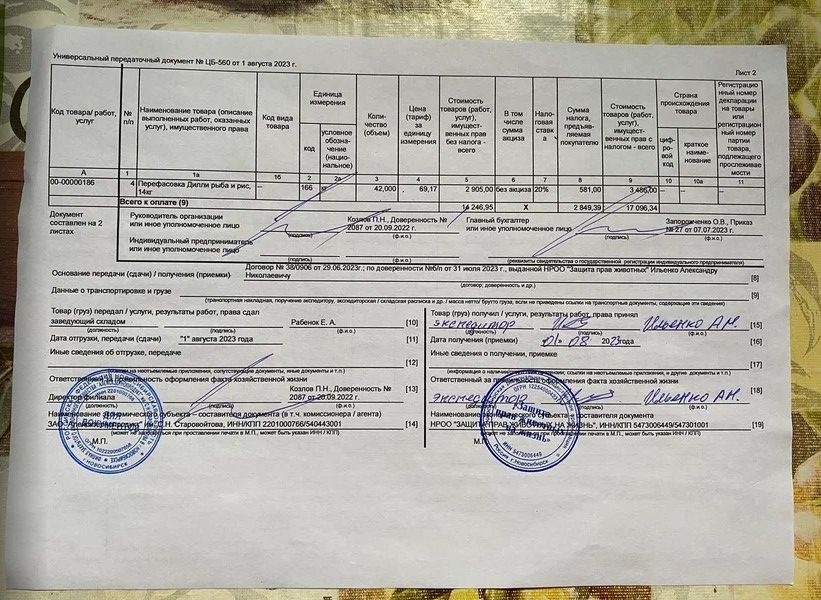 Универсальный передаточный документ № ЦБ-560 от 1 августа 2023 г.
Лист 2
Код товара/ работ, услуг
№ п/п
Наименование товара (описание выполненных работ, оказанных услуг), имущественного права
Код вида товара
Единица измерения
код
условное обозна- чение (нацио- нальное)
Коли- чество (объем)
Цена (тариф) за единицу измерения
Стоимость товаров (работ, услуг), имущест- венных прав без налога - всего
В том числе сумма акциза
Нало- говая ставк а
Сумма налога, предъяв- ляемая покупателю
Стоимость товаров (работ, услуг), имущест- венных прав с налогом - всего
Страна происхождения товара
циф- ровой код
краткое наиме- нование
Регистрацио нный номер декларации на товары или регистрацион ный номер партии товара, подлежащего прослеживае мости
А 1 1а 1б 2 2а 3 4 5 6 7 8 9 10 10а 11
00-00000186 4 Перефасовка Дилли рыба и рис, 14кг -- 166 кг 42,000 69,17 2 905,00 без акциза 20% 581,00 3 486,00 -- -- --
Всего к оплате (9) 14 246,95 X 2 849,39 17 096,34
Документ составлен на 2 листах
Руководитель организации или иное уполномоченное лицо
(подпись)
Козлов П.Н., Доверенность № 2087 от 20.09.2022 г.
(ф.и.о.)
Главный бухгалтер или иное уполномоченное лицо
(подпись)
Запорожченко О.В., Приказ № 27 от 07.07.2023 г.
(ф.и.о.)
Индивидуальный предприниматель или иное уполномоченное лицо
(подпись) (ф.и.о.)
(реквизиты свидетельства о государственной регистрации индивидуального предпринимателя)
Основание передачи (сдачи) / получения (приемки) Договор № 38/0906 от 29.06.2023г.; по доверенности №б/п от 31 июля 2023 г., выданной НРОО "Защита прав животных" Ильенко Александру Николаевичу [8]
(договор; доверенность и др.)
Данные о транспортировке и грузе [9]
(транспортная накладная, поручение экспедитору, экспедиторская / складская расписка и др. / масса нетто/ брутто груза, если не приведены ссылки на транспортные документы, содержащие эти сведения)
Товар (груз) передал / услуги, результаты работ, права сдал
заведующий складом Рабенок Е. А. [10]
(должность) (подпись) (ф.и.о.)
Дата отгрузки, передачи (сдачи) "1" августа 2023 года [11]
Иные сведения об отгрузке, передаче
[12]
(ссылки на неотъемлемые приложения, сопутствующие документы, иные документы и т.п.)
Ответственный за правильность оформления факта хозяйственной жизни
Директор филиала Козлов П.Н., Доверенность № 2087 от 20.09.2022 г. [13]
(должность) (подпись) (ф.и.о.)
Наименование экономического субъекта – составителя документа (в т.ч. комиссионера / агента)
Н. Старовойтова, ИНН/КПП 2201000766/540443001 [14]
(может не заполняться при проставлении печати в М.П., может быть указан ИНН / КПП)
М.П.
НОВОСИБИРСК
ДЛЯ ДОКУМЕНТОВ
Товар (груз) получил / услуги, результаты работ, права принял
экспедитор Ильенко А.Н. [15]
(должность) (подпись) (ф.и.о.)
Дата получения (приемки) 01 08 2023года [16]
Иные сведения о получении, приемке
[17]
(информация о наличии/отсутствии претензии; ссылки на неотъемлемые приложения, и другие документы и т.п.)
Ответственный за правильность оформления факта хозяйственной жизни
экспедитор Ильенко А.Н. [18]
(должность) (подпись) (ф.и.о.)
Наименование экономического субъекта - составителя документа
НРОО "ЗАЩИТА ПРАВ ЖИВОТНЫХ НА ЖИЗНЬ", ИНН/КПП 5473006449/547301001 [19]
(может не заполняться при проставлении печати в М.П., может быть указан ИНН / КПП)
М.П.
Защита прав животных на жизнь
ИНН 5473006449
Россия г.Новосибирск